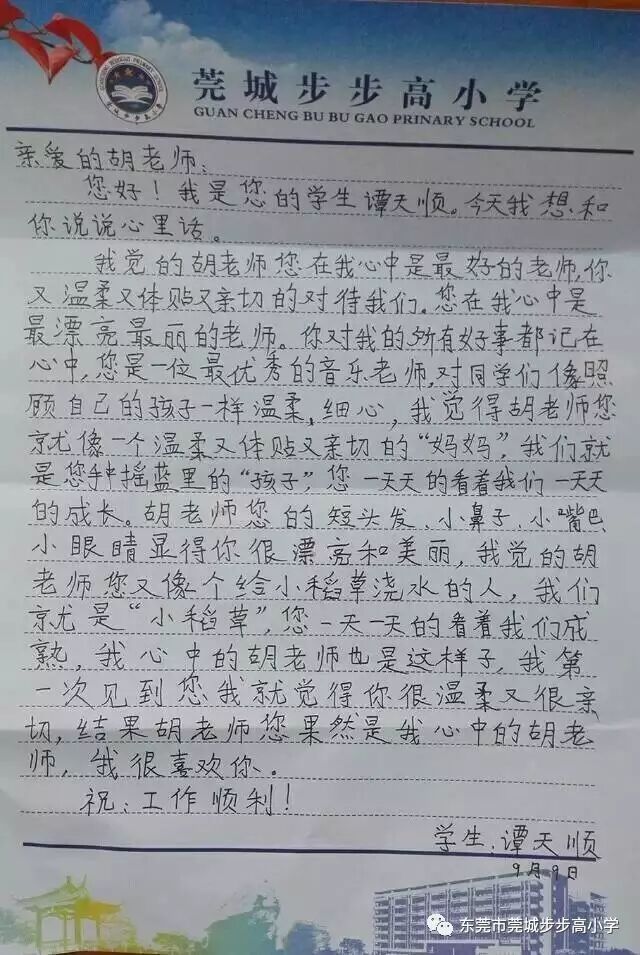 莞城步步高小学
GUAN CHENG BU BU GAO PRINARY SCHOOL
亲爱的胡老师:
您好!我是您的学生谭天顺。今天我想和
你说说心里话。
我觉的胡老师您在我心中是最好的老师,你
又温柔又体贴又亲切的对待我们。您在我心中是
最漂亮最丽的老师。你对我的所有好事都记在
心中,您是一位最优秀的音乐老师,对同学们像照
顾自己的孩子一样温柔,细心,我觉得胡老师您
就像一个温柔又体贴又亲切的“妈妈”,我们就
是您手中摇蓝里的“孩子”,您一天天的看着我们一天天
的成长。胡老师您的短头发、小鼻子、小嘴巴
小眼睛显得你很漂亮和美丽,我觉的胡
老师您又像个给小稻草浇水的人,我们
就是“小稻草”,您一天一天的看着我们成
熟,我心中的胡老师也是这样子,我第
一次见到您我就觉得你很温柔又很亲
切,结果胡老师您果然是我心中的胡老
师,我很喜欢你。
祝:工作顺利!
学生:谭天顺
9月9日
东莞市莞城步步高小学